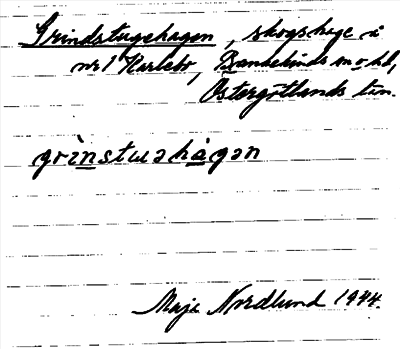 Grindstugehagen, skogshage i
nr 1 Karlebo, Bankekinds sn o hd,
Östergötlands län.
grinstuəhagən
Maja Nordlund 1944.